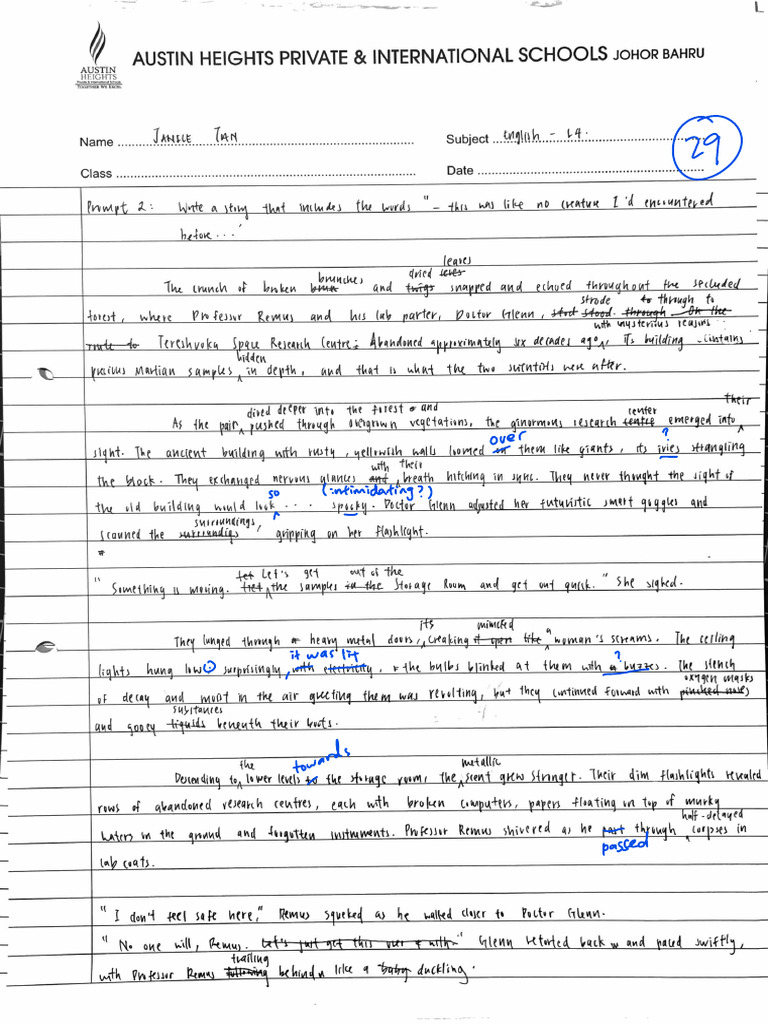 L
AUSTIN HEIGHTS
Private & International Schools
TOGETHER WE EXCEL
AUSTIN HEIGHTS PRIVATE & INTERNATIONAL SCHOOLS JOHOR BAHRU
Name Janele Tan Subject English - L4.
29
Class Date
Prompt 2: Write a story that includes the words "- this was like no creature I'd encountered
before...'
The crunch of broken brunches and dried leaves snapped and echoed throughout the secluded
forest, where Professor Remus and his lab parter, Doctor Glenn, strode through to
Tereshvoka Space Research Centre. Abandoned approximately six decades ago, with mysterious reasons its building contains
precious Martian samples hidden in depth, and that is what the two scientists were after.
As the pair dived deeper into the forest and pushed through overgrown vegetations, the ginormous research center emerged into their
sight. The ancient building with rusty, yellowish walls loomed over them like giants, its ivies strangling ?
the block. They exchanged nervous glances with their breath hitching in sync. They never thought the sight of
the old building would look so ... spooky. (intimidating?) Doctor Glenn adjusted her futuristic smart goggles and
scanned the surroundings, gripping on her flashlight.
*
"Something is moving. Let's get the samples out of the Storage Room and get out quick." She sighed.
They lunged through heavy metal doors, its creaking mimicked a woman's screams. The ceiling
lights hung low. surprisingly, it was lit. the bulbs blinked at them with a buzzes. ? The stench
of decay and moist in the air greeting them was revolting, but they continued forward with oxygen masks
and gooey substances beneath their boots.
Descending to the lower levels towards the storage room, the metallic scent grew stronger. Their dim flashlights revealed
rows of abandoned research centres, each with broken computers, papers floating on top of murky
waters on the ground and forgotten instruments. Professor Remus shivered as he passed through half-delayed corpses in
lab coats.
"I don't feel safe here," Remus squeked as he walked closer to Doctor Glenn.
"No one will, Remus. Let's just get this over with" Glenn retorted back and paced swiftly,
with Professor Remus trailing behind like a baby duckling.